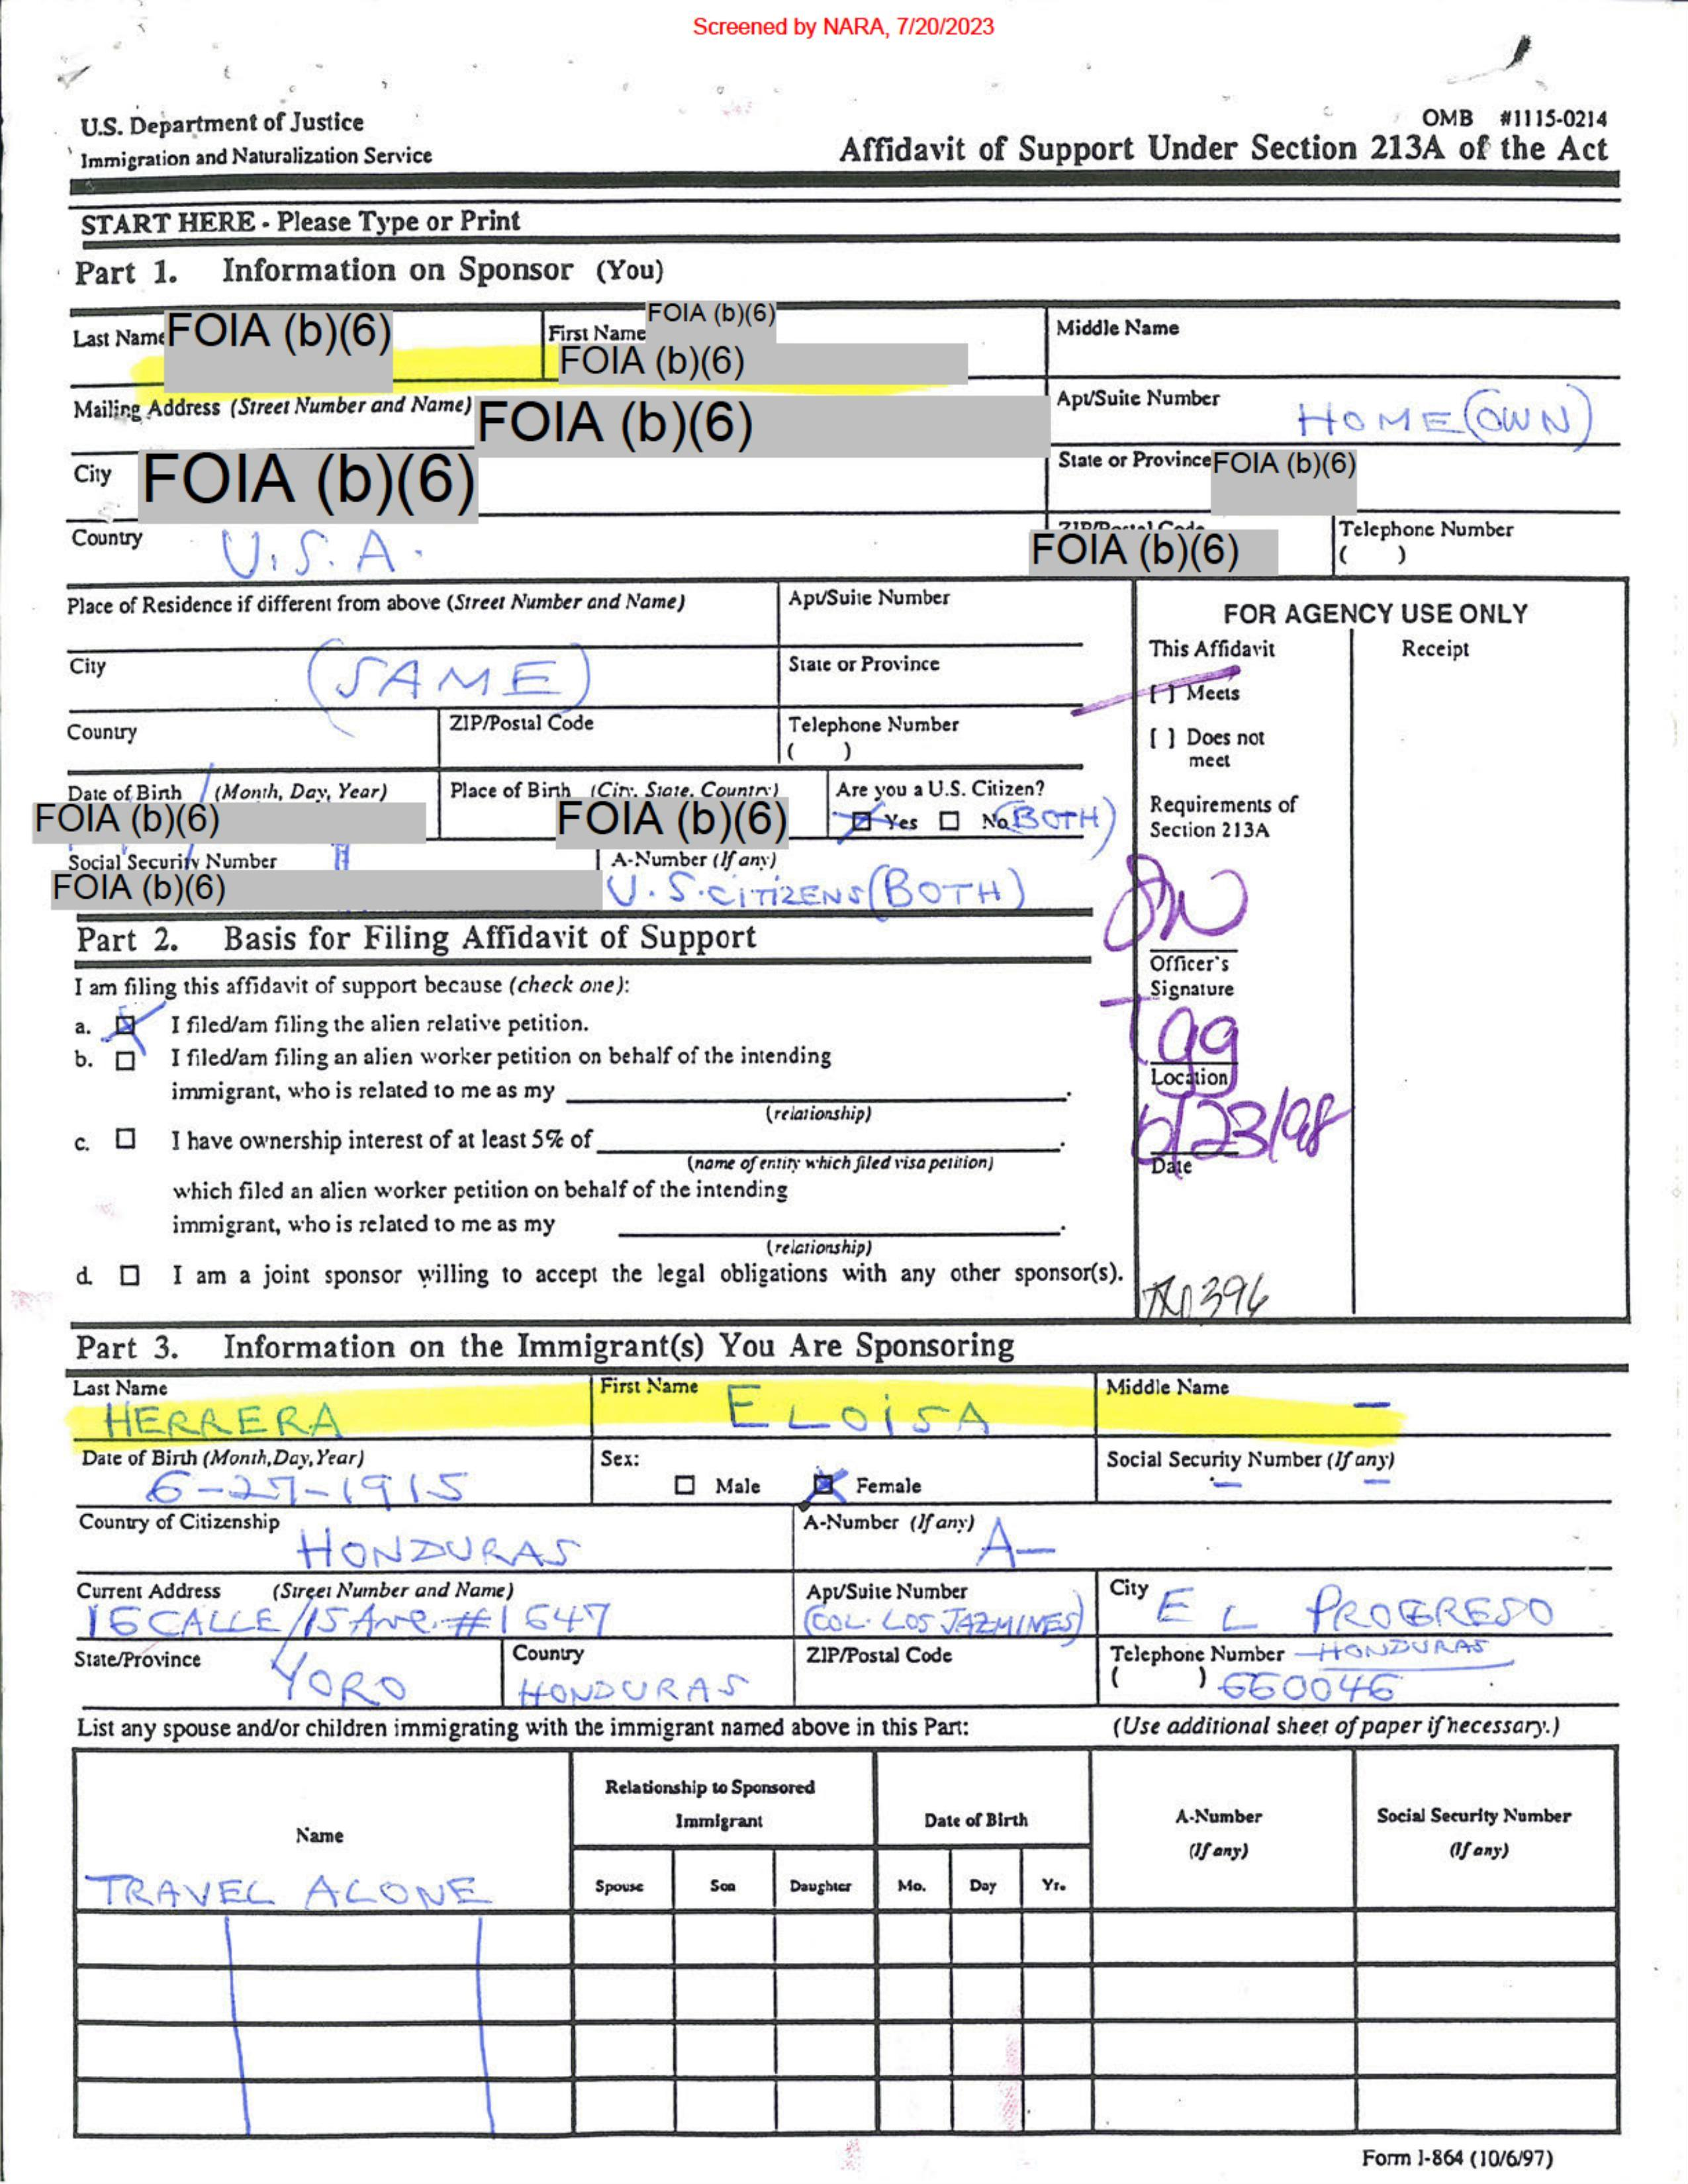 Screened by NARA, 7/20/2023
U.S. Department of Justice
Immigration and Naturalization Service
OMB #1115-0214
Affidavit of Support Under Section 213A of the Act
START HERE - Please Type or Print
Part 1. Information on Sponsor (You)
Last Name FOIA (b)(6) First Name FOIA (b)(6) FOIA (b)(6) Middle Name
Mailing Address (Street Number and Name) FOIA (b)(6) Apt/Suite Number HOME (OWN)
City FOIA (b)(6) State or Province FOIA (b)(6)
Country U.S.A. ZIP/Postal Code FOIA (b)(6) Telephone Number ( )
Place of Residence if different from above (Street Number and Name) Apt/Suite Number
City (SAME) State or Province
Country ZIP/Postal Code Telephone Number ( )
Date of Birth (Month, Day, Year) FOIA (b)(6) Place of Birth (City, State, Country) FOIA (b)(6) Are you a U.S. Citizen? Yes No (BOTH)
Social Security Number FOIA (b)(6) A-Number (If any) U.S. CITIZENS (BOTH)
FOR AGENCY USE ONLY
This Affidavit Receipt
[ ] Meets
[ ] Does not meet
Requirements of Section 213A
Officer's Signature
Location
6/23/98
Date
Part 2. Basis for Filing Affidavit of Support
I am filing this affidavit of support because (check one):
a. I filed/am filing the alien relative petition.
b. I filed/am filing an alien worker petition on behalf of the intending
immigrant, who is related to me as my .
(relationship)
c. I have ownership interest of at least 5% of .
(name of entity which filed visa petition)
which filed an alien worker petition on behalf of the intending
immigrant, who is related to me as my .
(relationship)
d. I am a joint sponsor willing to accept the legal obligations with any other sponsor(s).
Part 3. Information on the Immigrant(s) You Are Sponsoring
Last Name HERRERA First Name ELOiSA Middle Name —
Date of Birth (Month,Day,Year) 6-27-1915 Sex: Male Female Social Security Number (If any) — —
Country of Citizenship HONDURAS A-Number (If any) A—
Current Address (Street Number and Name) 16 CALLE/15 Ave. #1647 Apt/Suite Number (COL. LOS JAZMINES) City EL PROGRESO
State/Province YORO Country HONDURAS ZIP/Postal Code Telephone Number — HONDURAS ( ) 660046
List any spouse and/or children immigrating with the immigrant named above in this Part: (Use additional sheet of paper if necessary.)
Name Relationship to Sponsored Immigrant Date of Birth A-Number (If any) Social Security Number (If any)
Spouse Son Daughter Mo. Day Yr.
TRAVEL ALONE
Form I-864 (10/6/97)